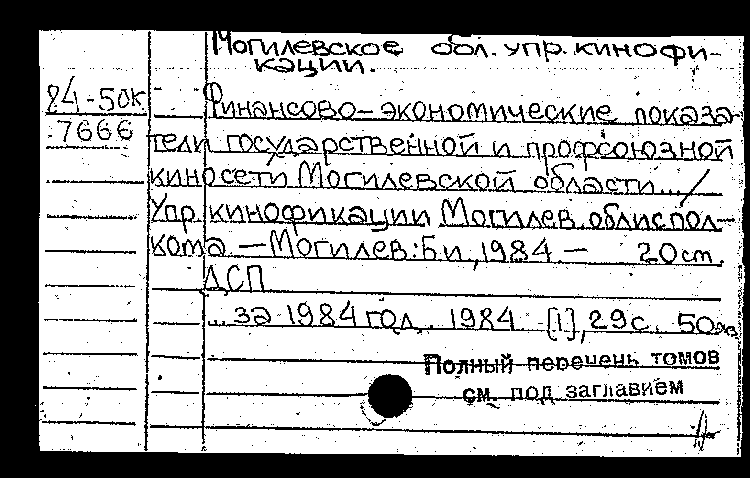 Могилевское обл. упр. кинофи-
кации.
84-50к
7666
Финансово-экономические показа-
тели государственной и профсоюзной
киносети Могилевской области... /
Упр. кинофикации Могилев. облиспол-
кома — Могилев: Б.и., 1984. — 20 см.
ДСП
...за 1984 год. 1984. [1], 29 с. 50
Полный перечень томов
см. под заглавием